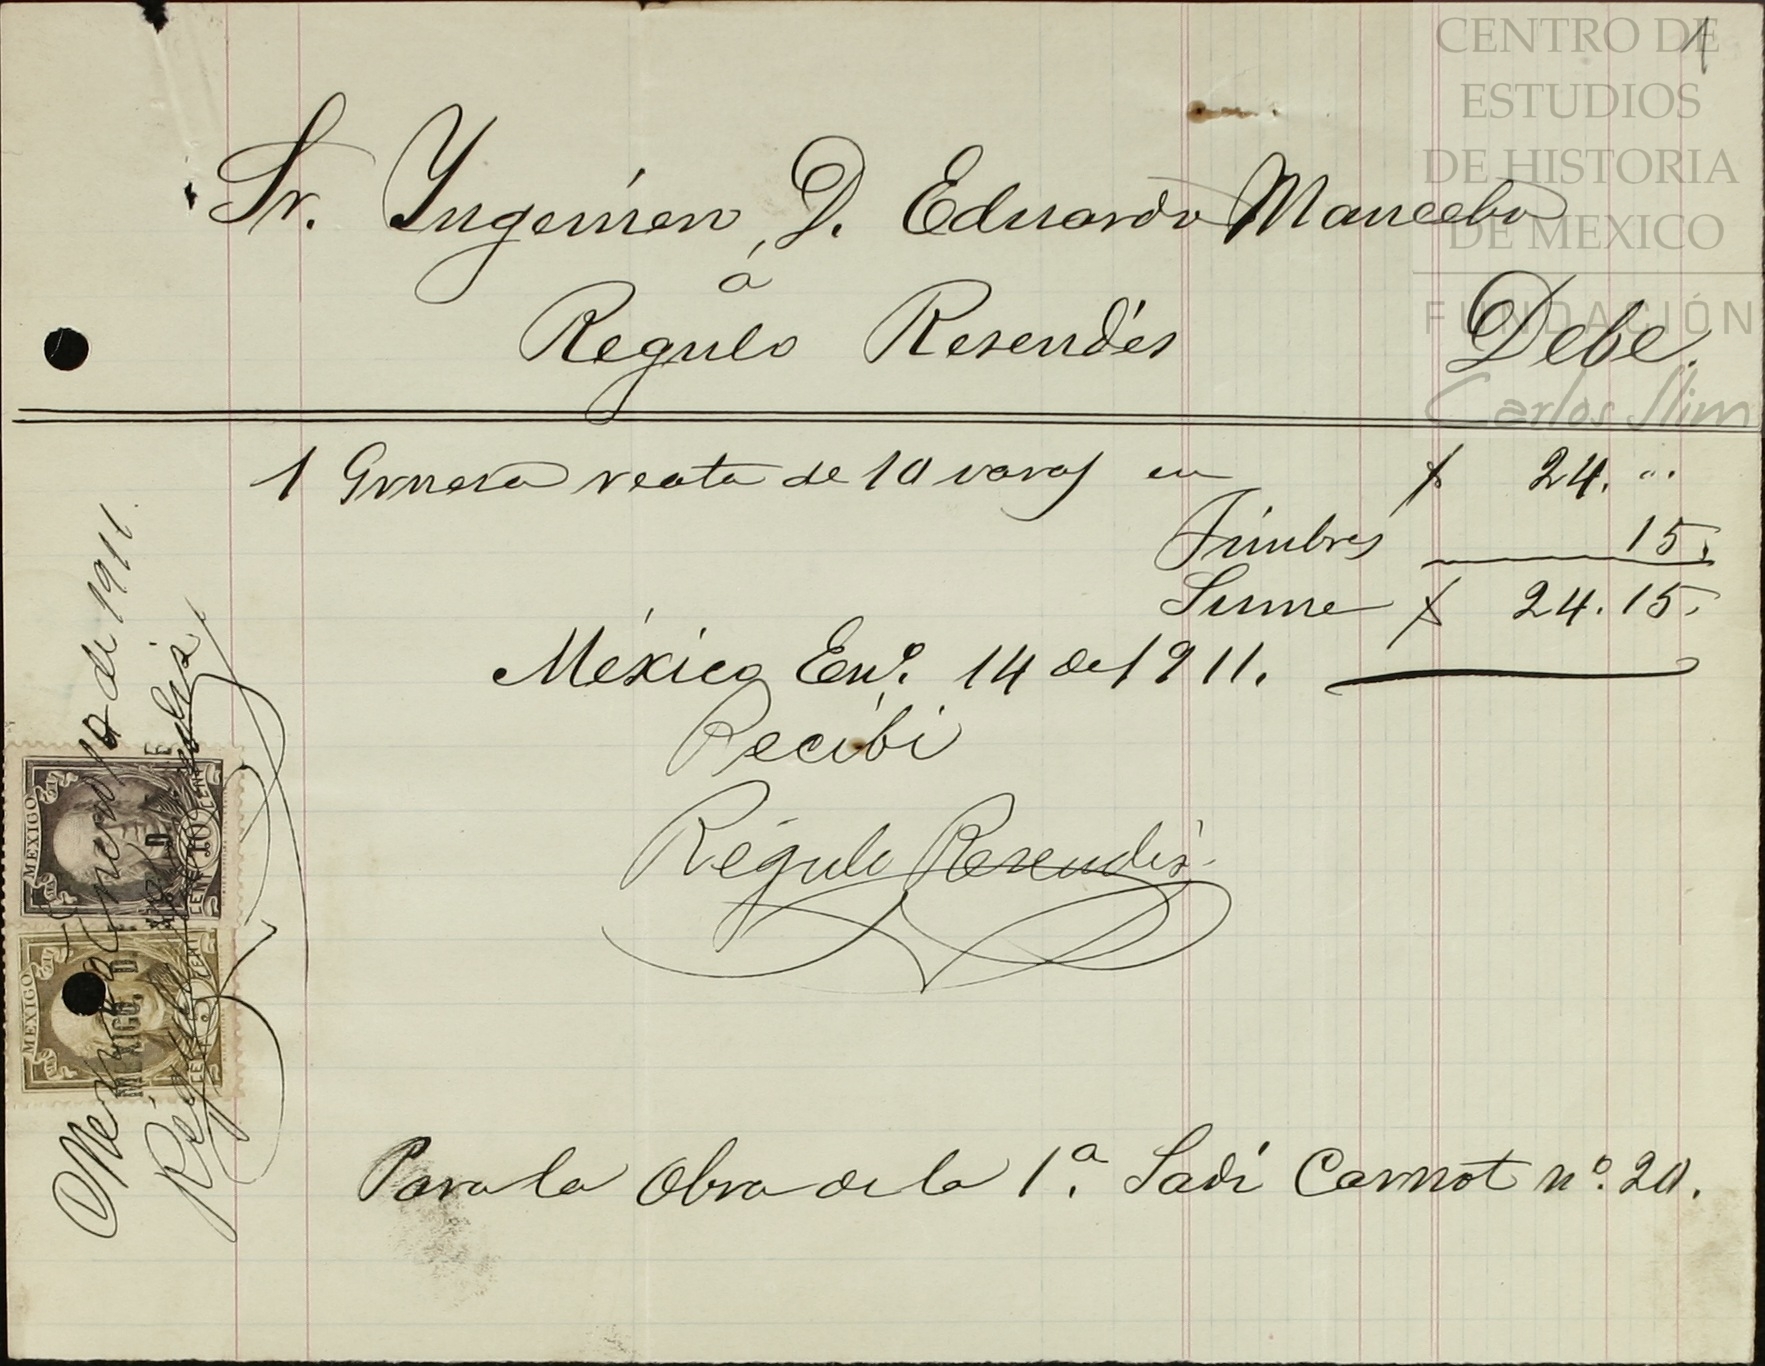 1
CENTRO DE
ESTUDIOS
DE HISTORIA
DE MEXICO
FUNDACIÓN
Carlos Slim
Sr. Yngenien D. Eduardo Mancebo
á
Regulo Resendés Debe.
1 Gruesa reata de 10 varas en $ 24. "
Timbres 15.
Suma $ 24.15.
México Enº. 14 de 1911.
Recibi
Régulo Resendis
Para la obra de la 1.ª Sadi Carnot nº. 20.
Mexico Enero 14 de 1911.
Régulo Resendis
MEXICO
MEXICO